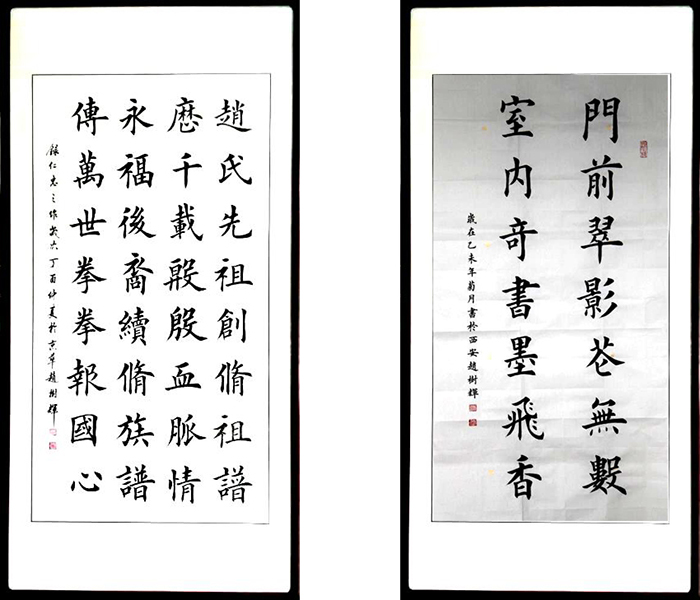 趙氏先祖創脩祖譜
厯千載殷殷血脈情
永福後裔續脩族譜
傳萬世拳拳報國心
錄仁忠之作歲次丁酉仲夏於京華趙樹輝
門前翠影花無數
室内奇書墨飛香
歲在乙未年菊月書於西安趙樹輝